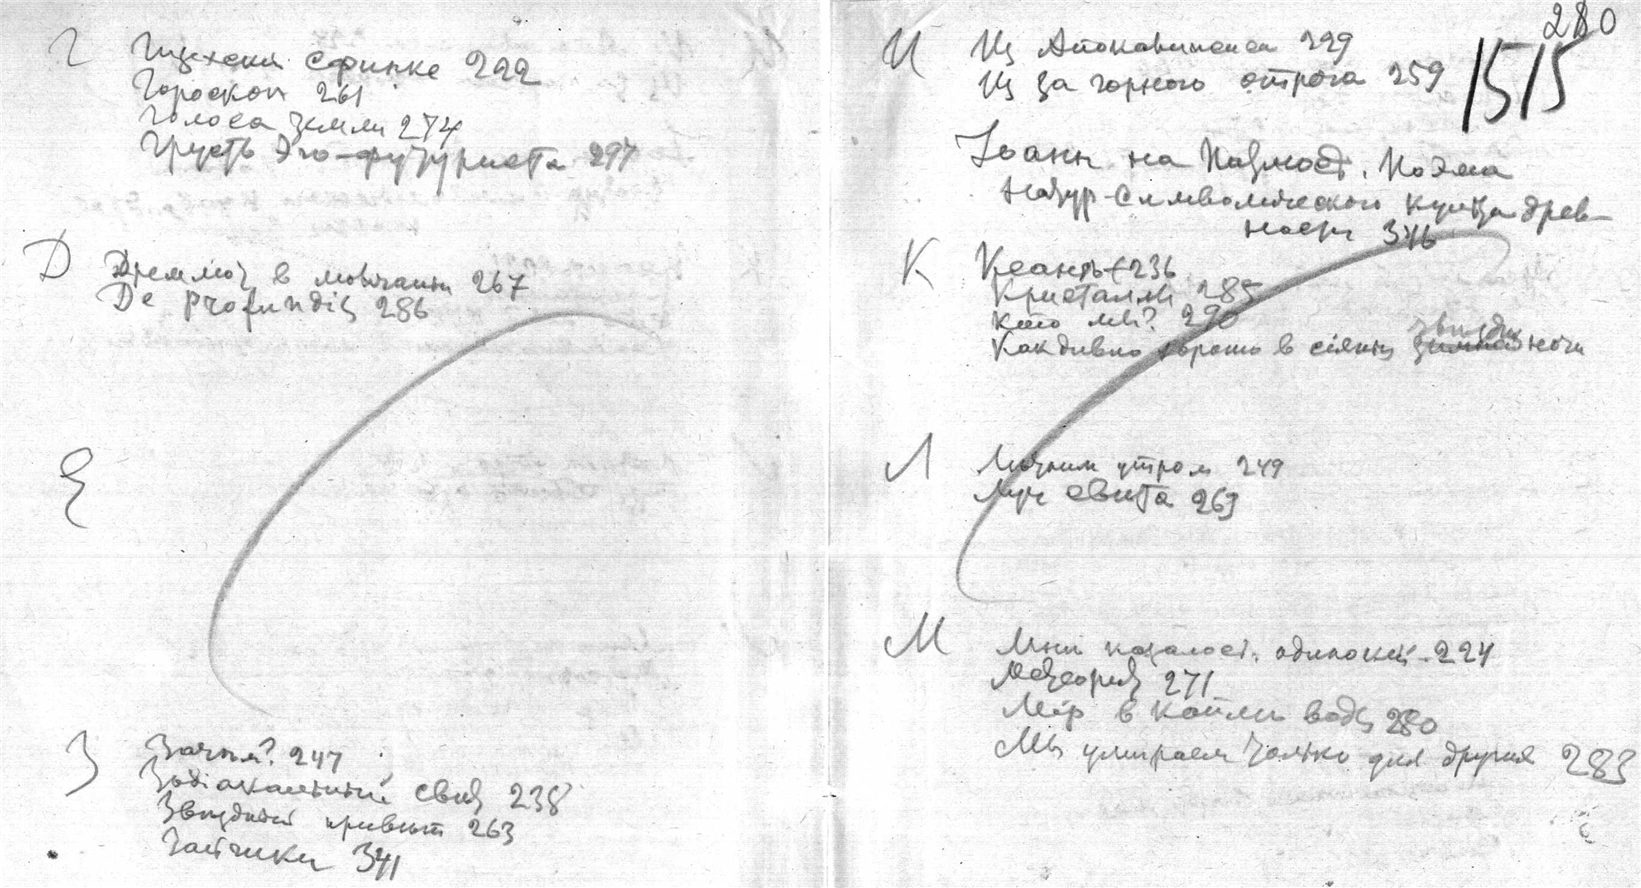 Г
Гороскоп 261
Голоса земли 274
Грусть Эго-футуриста 297
Д
Дремлю я в молчаньи 267
De Profundis 286
Е
З
Зачѣм? 247
Зодіакальный свѣт 238
Звѣздный привѣт 263
Зайчики 341
280
1515
И
Из Апокалипсиса 229
Из за горного острога 259
Іоанн на Патмосѣ. Поэма
натур-символического купца древ-
ности 346
К
236
Кристаллы 285
Кто мы? 290
Как дивно хорошо в сіяньи звѣздн ночи
Л
утром 249
Луч свѣта 269
М
Мнѣ казалось одинокій 224
Метеорит 271
Мір в каплѣ воды 280
Мы умираем только для других 283